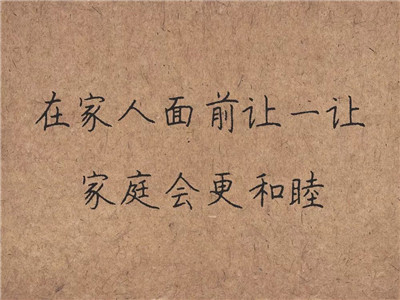 在家人面前让一让
家庭会更和睦